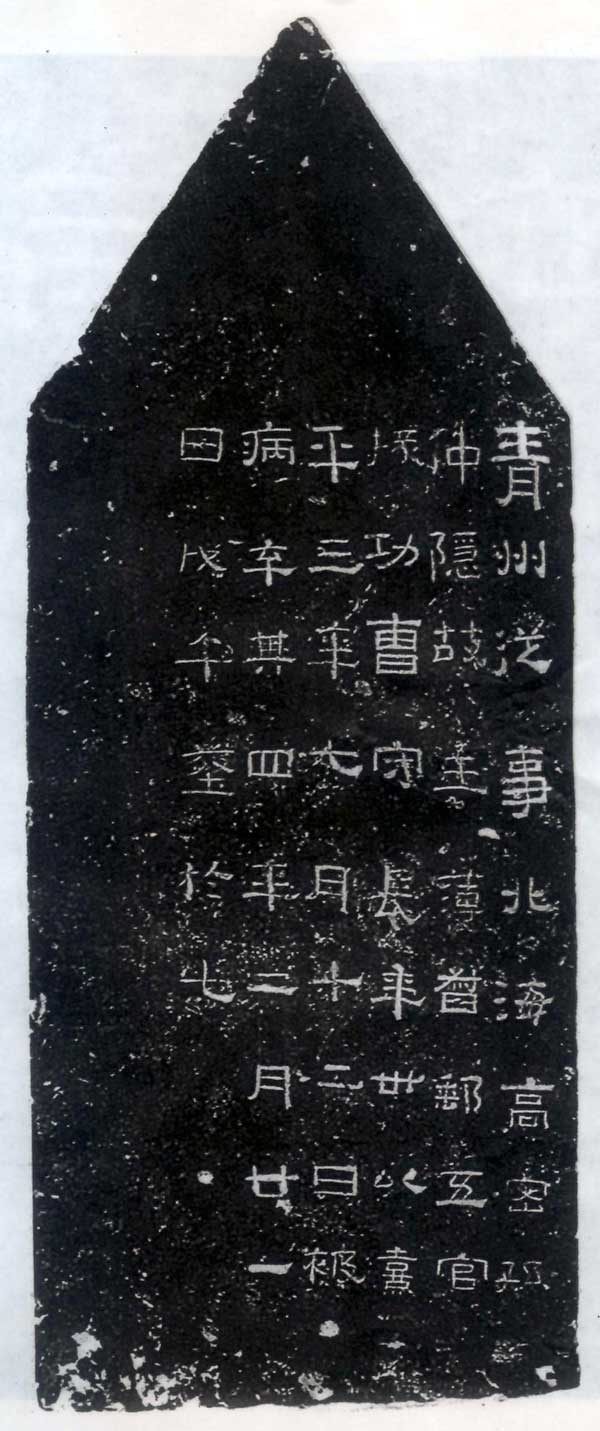 青州從事北海高密孫
仲隱故主簿督郵五官
掾功曹守長年卅以熹
平三年七月十二日被
病卒其四年二月廿一
日戊午葬於此